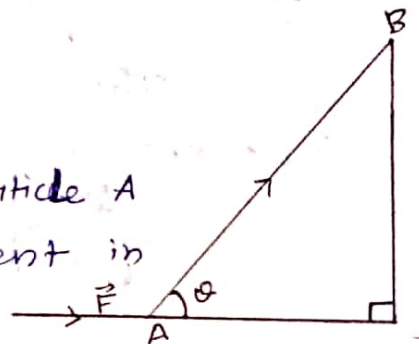 B
rticle A
ent in
F⃗ θ
A